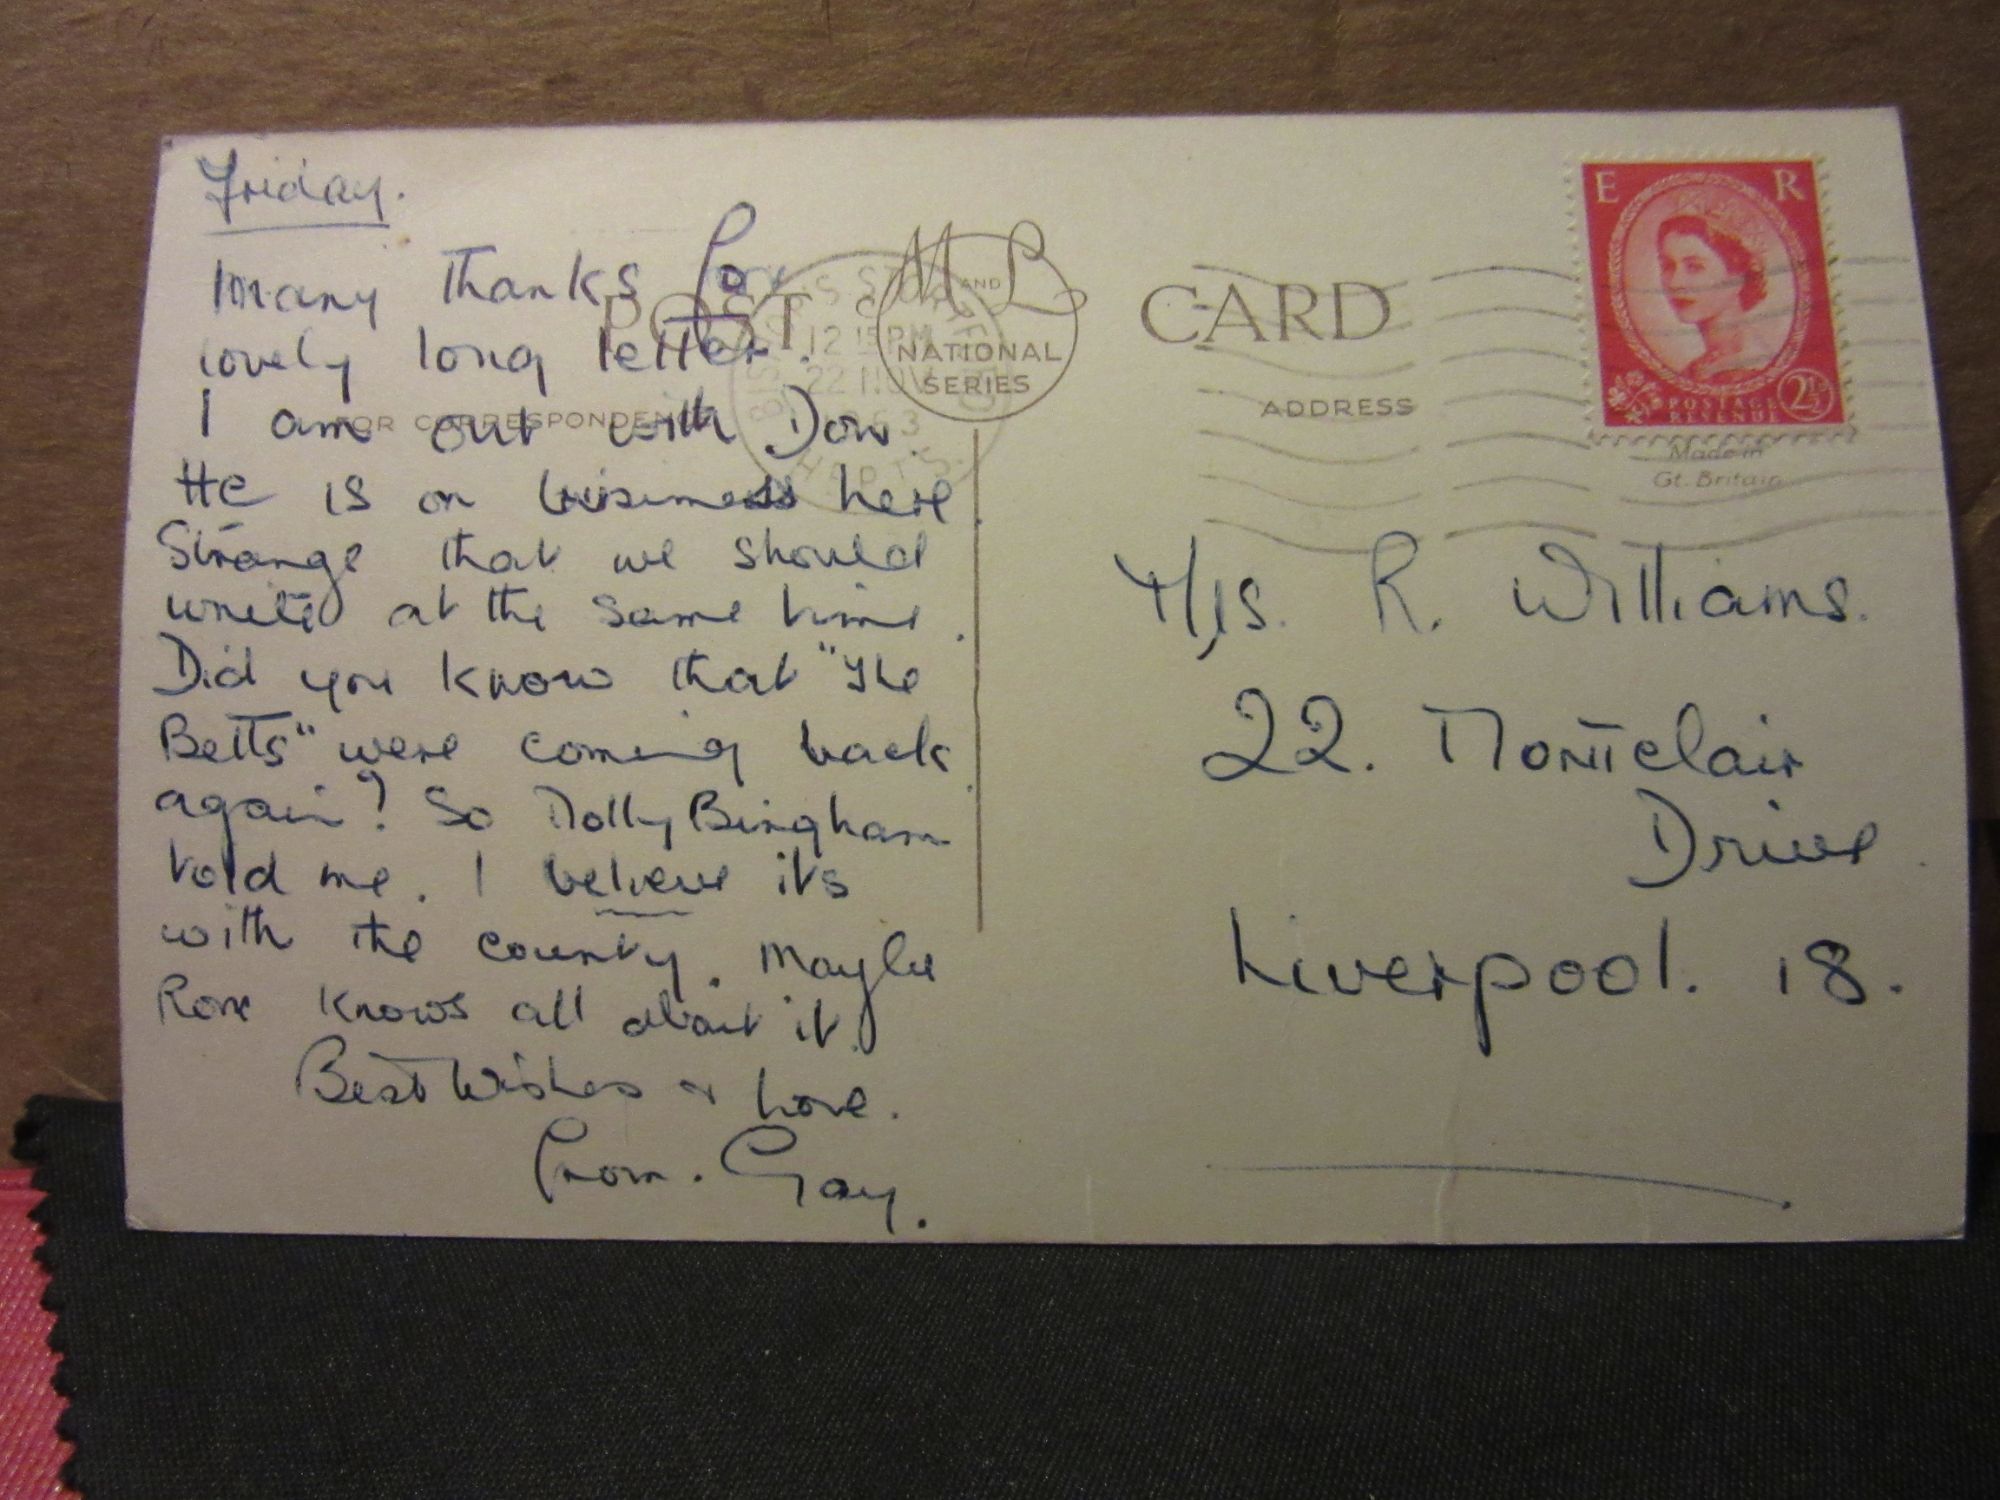 Friday.
Many thanks for
lovely long letter.
I am out with Don.
He is on business here.
Strange that we should
write at the same time.
Did you know that "The
Betts" were coming back
again? So Molly Bingham
told me. I believe its
with the county. Maybe
knows all about it.
Best Wishes & Love.
From. Gay.
POST CARD
M AND L
NATIONAL
SERIES
FOR CORRESPONDENCE
ADDRESS
BISHOP'S STORTFORD
12 15 PM
22 NOV
HERTS.
E R
POSTAGE
REVENUE
2½
Made in
Gt. Britain
Mrs. R. Williams.
22. Montclair
Drive.
Liverpool. 18.